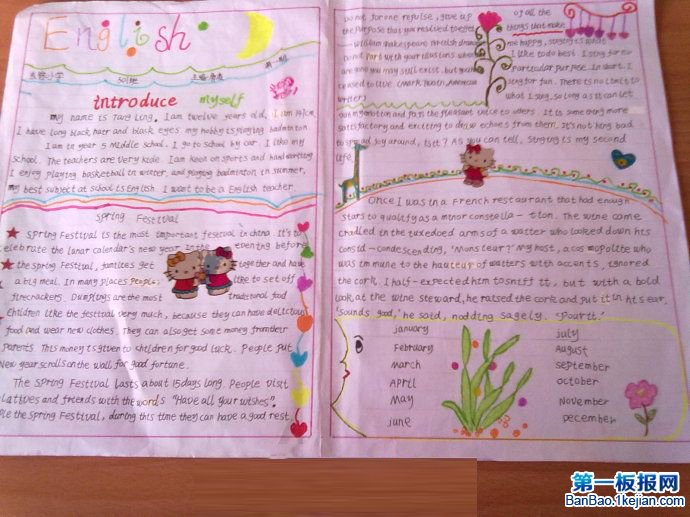 English
introduce myself
my name is Tang Ling. I am twelve years old, I am 14 cm,
I have long black hair and black eyes my hobby is playing badminton.
I am in year 5 Middle school. I go to school by car. I like my
school. The teachers are very kide. I am keen on sports and hard working
I enjoy playing basketball in winter, and playing badminton in summer,
my best subject at school is English I want to be a English teacher.
Spring Festival
Spring Festival is the most important feserival in china. It's to
celebrate the lunar calendar's new year. In the evening before
the spring Festival, families get together and have
a big meal. In many places People like to set off
firecrackers. Dumplings are the most traditional food
Children like the festival very much, because they can have delicious
food and wear new clothes. They can also get some money from their
Parents. This money is given to children for good luck. People put
New year scrolls on the wall for good fortune.
The Spring Festival lasts about 15 days long People visit
latives and friends with the words "Have all your wishes".
ple the Spring Festival, during this time they can have a good rest.
Do not, for one repulse, give up
the purpose that you resolved to effect
William Shakespeare, British dramatist
Do not part with your illusions when
are gone you may still exist, but you
ceased to live (Mark Twain American
writer)
of all the
things that make
me happy, singing is what
I like to do best. I sing for no
particular purpose. In short. I
sing for fun. There is no limit to
what I sing, so long as it can let
out my motion and pass the pleasant voice to others. It is something more
satisfactory and exciting to draw echoes from them. It's not hing bad
to spread joy around, isit? As you can tell, singing is my second
life.
Once I was in a French restaurant that had enough
stars to qualify as a minor constella - tion. The wine came
cradled in the tuxedoed arms of a waiter who looked down his
consid - condescending, 'Monsieur?' My host, a cosmopolite who
was immune to the hauteur of waiters with accents, ignored
the cork. I half - expected him to sniff it, but with a bold
look at the wine steward, he raised the cork and put it in his ear.
'Sounds good,' he said, nodding sagely. 'pour it.'
january july
February August
march september
April october
May November
june December
第一板报网
BanBao.1kejian.com